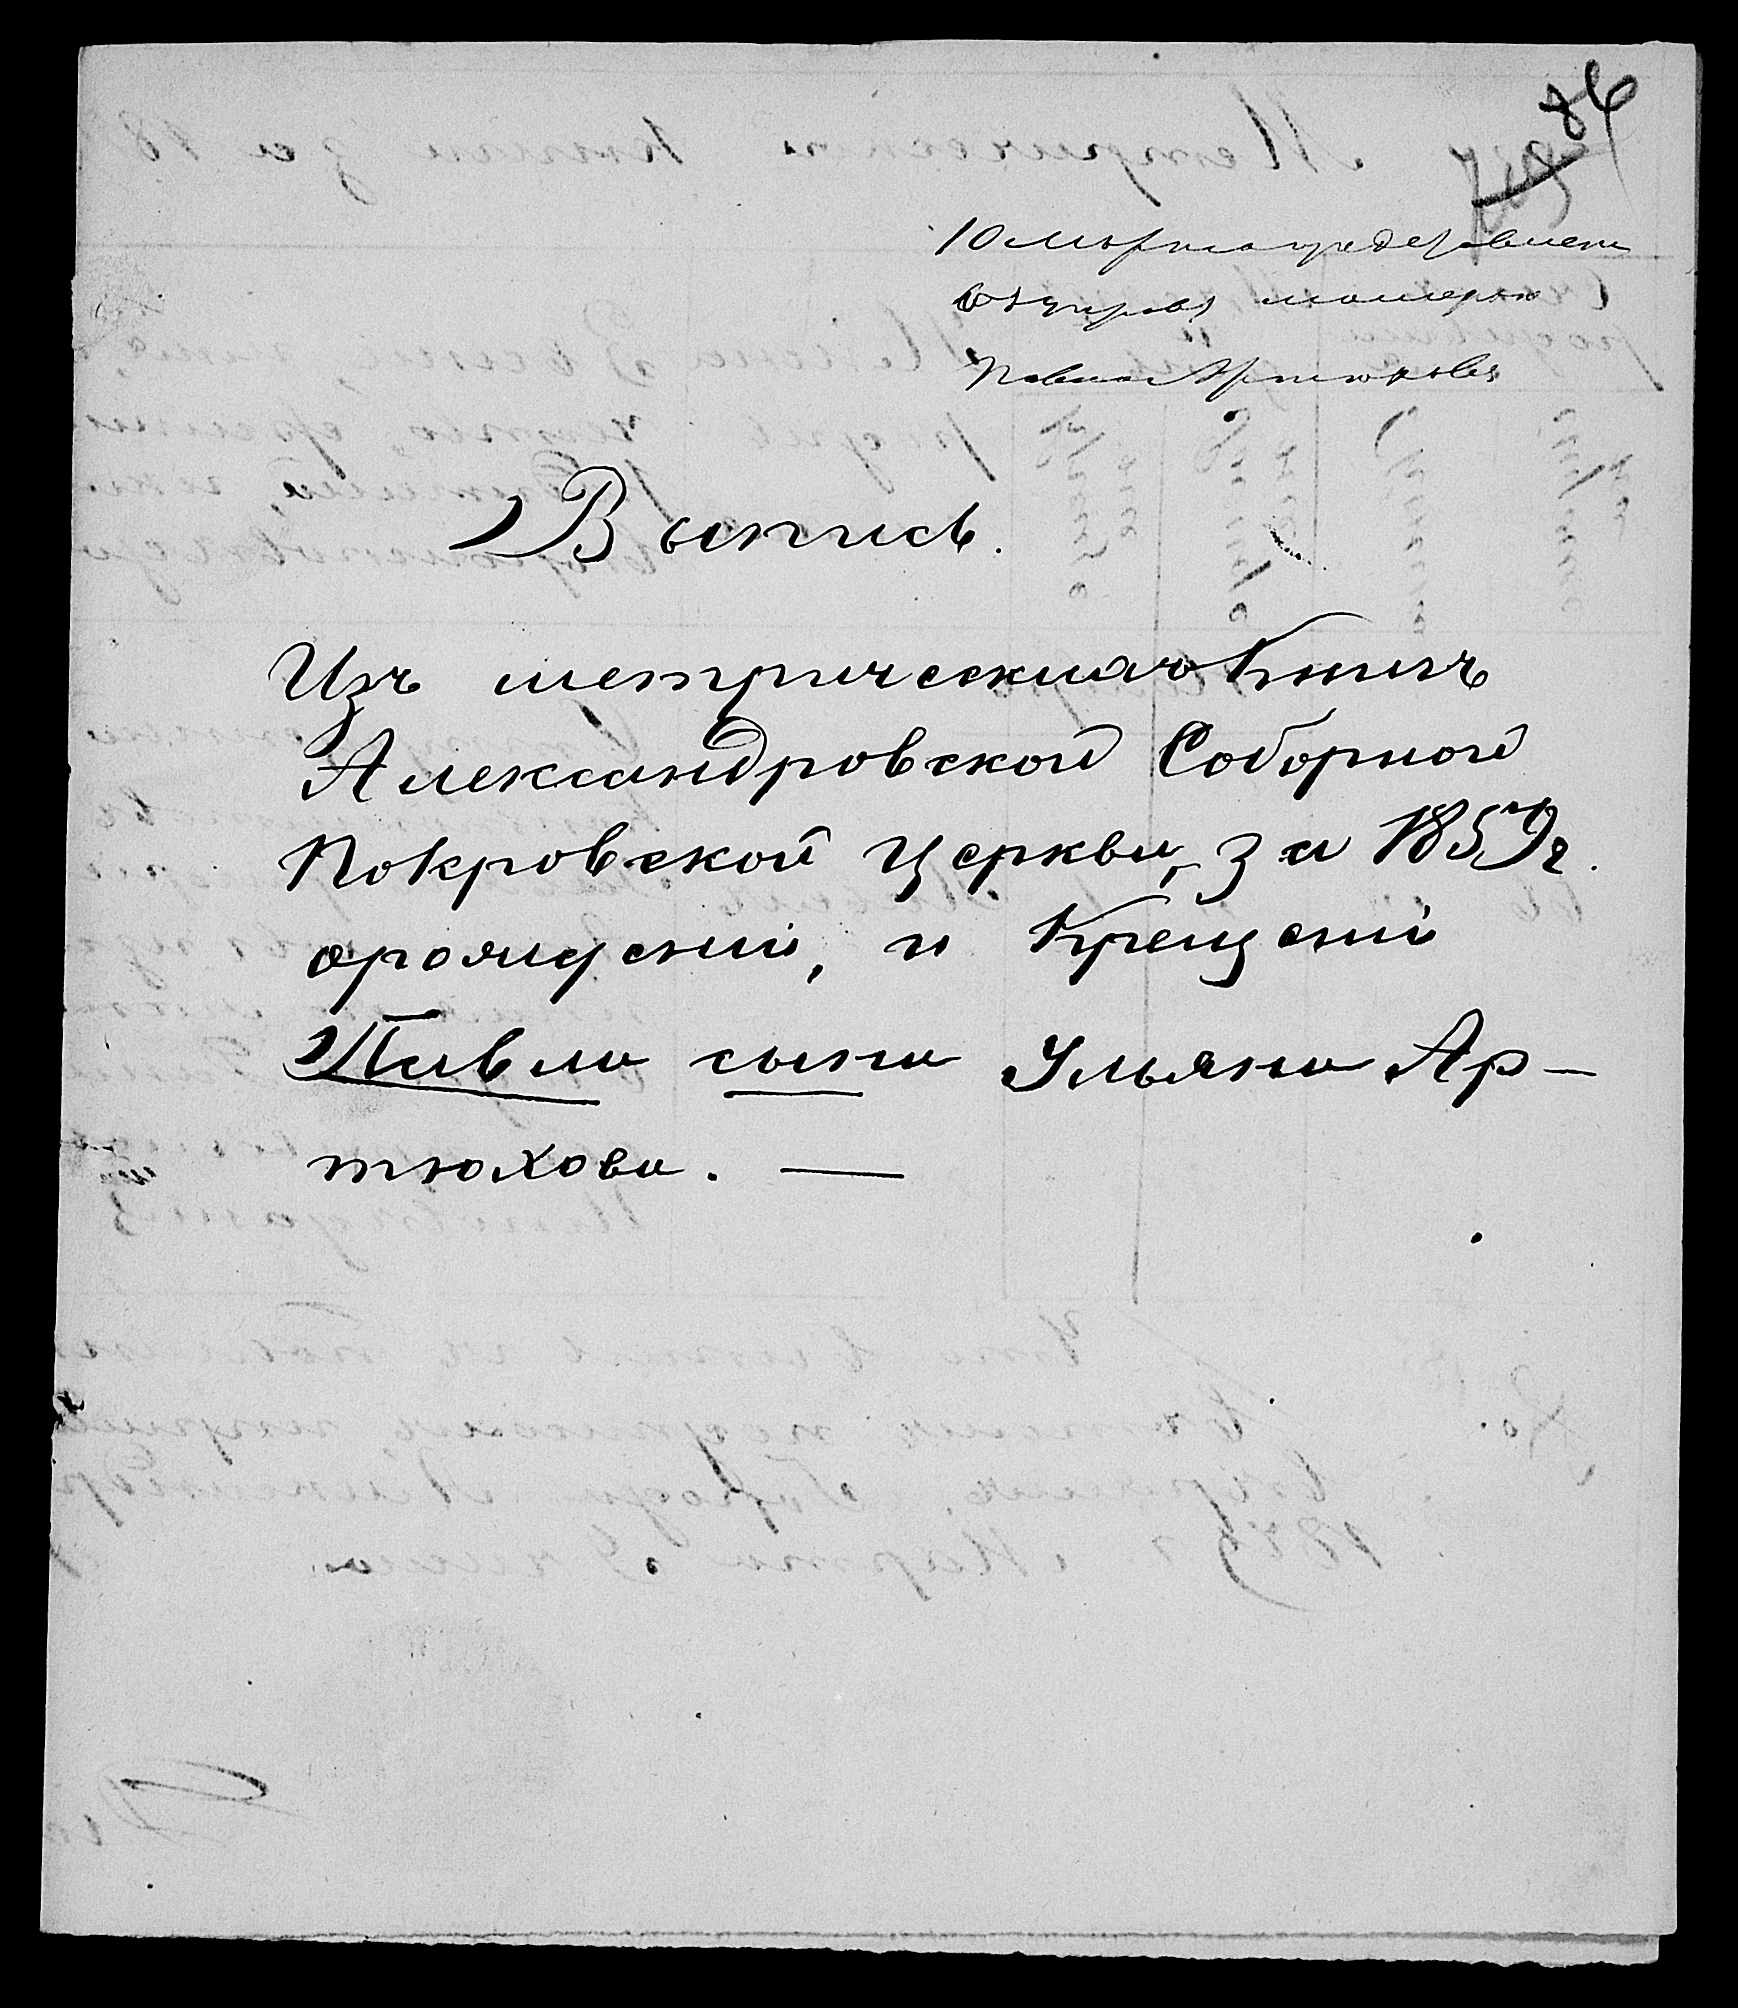 86
10 марта предъявлена
матерью
Павла Артюхова
Выпись.
Изъ метрическихъ книгъ
Александровской Соборной
Покровской церкви, за 1859 г.
орождении, и Крещении
Павла сына Ульяна Ар-
тюхова. —